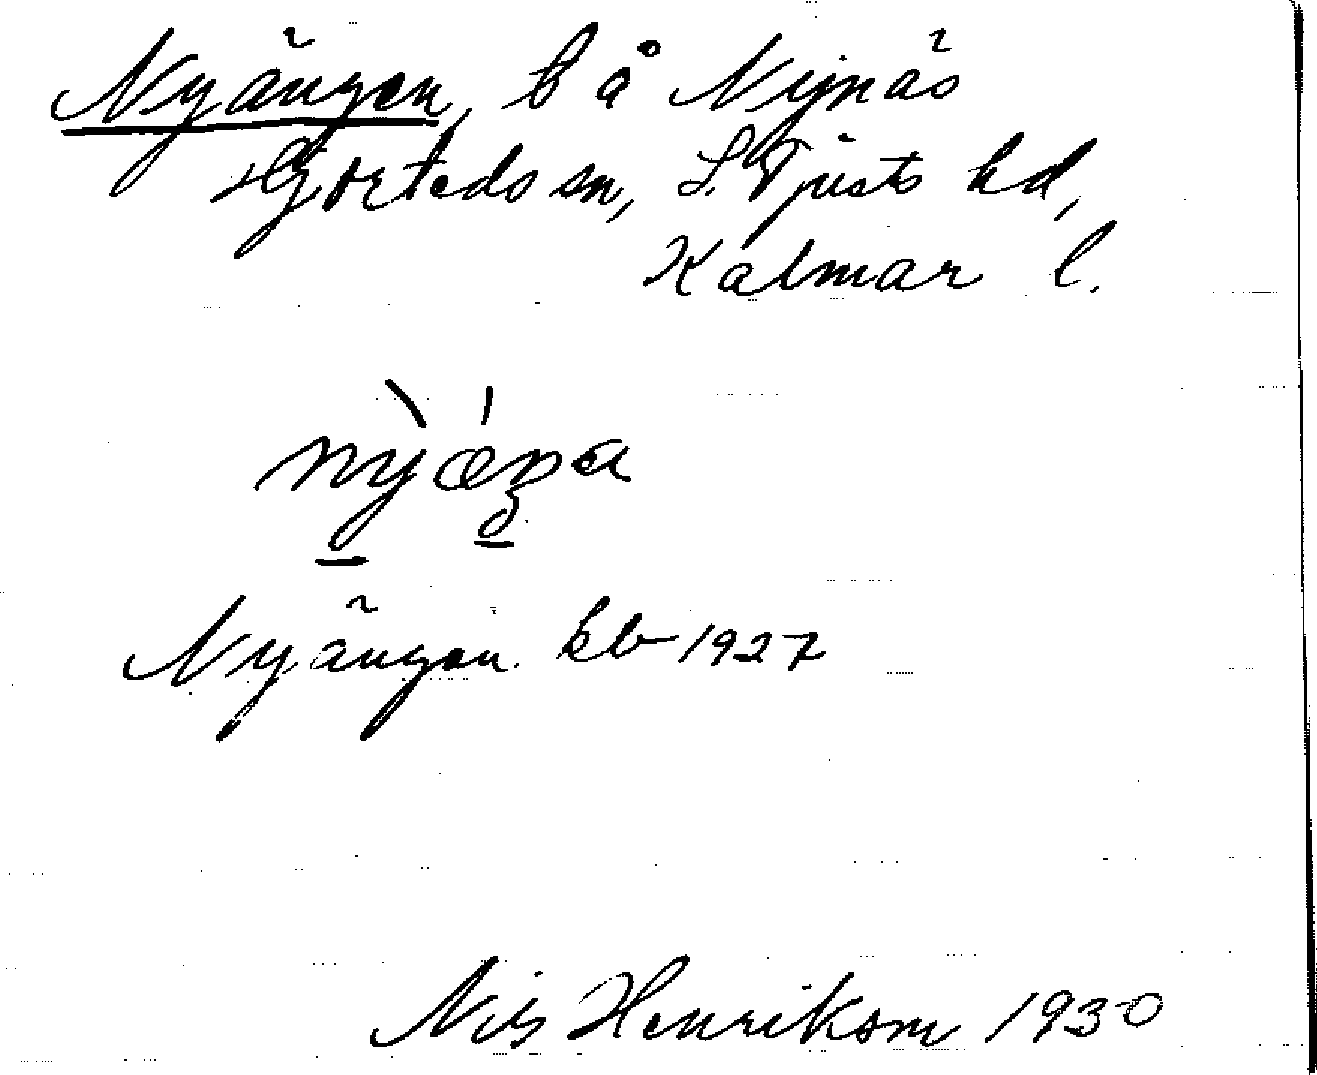 Nyängen, b å Nynäs
Hjorteds sn, S. Tjusts hd,
Kalmar l.
nỳǽŋa
Nyängen kb 1927
Nils Henrikson 1930